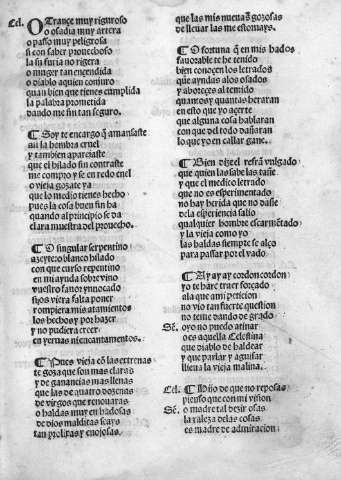 Cel. O Trançe muy riguroso
o osadia muy artera
o passo muy peligrosa
si con saber prouechoso
la su furia no rigera
o muger tan encendida
o diablo aquien conjuro
quan bien que tienes cumplida
la palabra prometida
dando me fin tan seguro.
¶ Soy te encargo q̃ amansaste
ali la hembra cruel
y tambien apareiaste
que el hilado sin contraste
me compro y se en redo enel
o vieja gozate ya
que lo medio tienes hecho
pues la cosa buen fin ha
quando al principio se da
clara muestra del prouecho.
¶ O singular serpentino
azeyte o blanco hilado
con que curso repentino
en mi ayuda sobre vino
vuestro fauor ynuocado
si os viera falta poner
rompiera mis atamientos
los hechos y por hazer
y no pudiera creer
en yernas nicencantamentos.
¶ Pues vieja cõ las estrenas
te goza que son mas claras
y de ganancias mas llenas
que las de quatro dozenas
de virgos que renouaras
o haldas muy enhadosas
de dios malditas seays
tan prolixas y enojosas.
que las mis nueuas gozosas
de lleuar las me estoruays.
¶ O fortuna q̃ en mis hados
fauorable te he tenido
bien conoçen los letrados
que ayudas alos osados
y aborreçes al temido
quantos y quantas heraran
en esto que yo açerte
que alguna cosa hablaran
con que del todo dañaran
lo que yo en callar gane.
¶ Bien dizeel refrã vulgado
que quien las sabe las tañe
y que el medico letrado
que no es esperimentado
no hay herida que no dañe
dela esperiencia salio
qualquier hombre escarmẽtado
y la vieja como yo
las haldas siempre se alço
para passar por el vado.
¶ Ay ay ay cordon cordon
yo te hare traer forçado
ala que ami peticion
no vio tan fuerte question
no teme dando de grado
Sẽ. o yo no puedo atinar
o es aquella Celestina
que diablo de haldear
y que parlar y aguisar
lleua la vieja malina.
Cel. ¶ Hijo de que no reposas
pienso que con mi vision
Sẽ. o madre tal dezir osas
la raleza delas cosas
es madre de admiracion